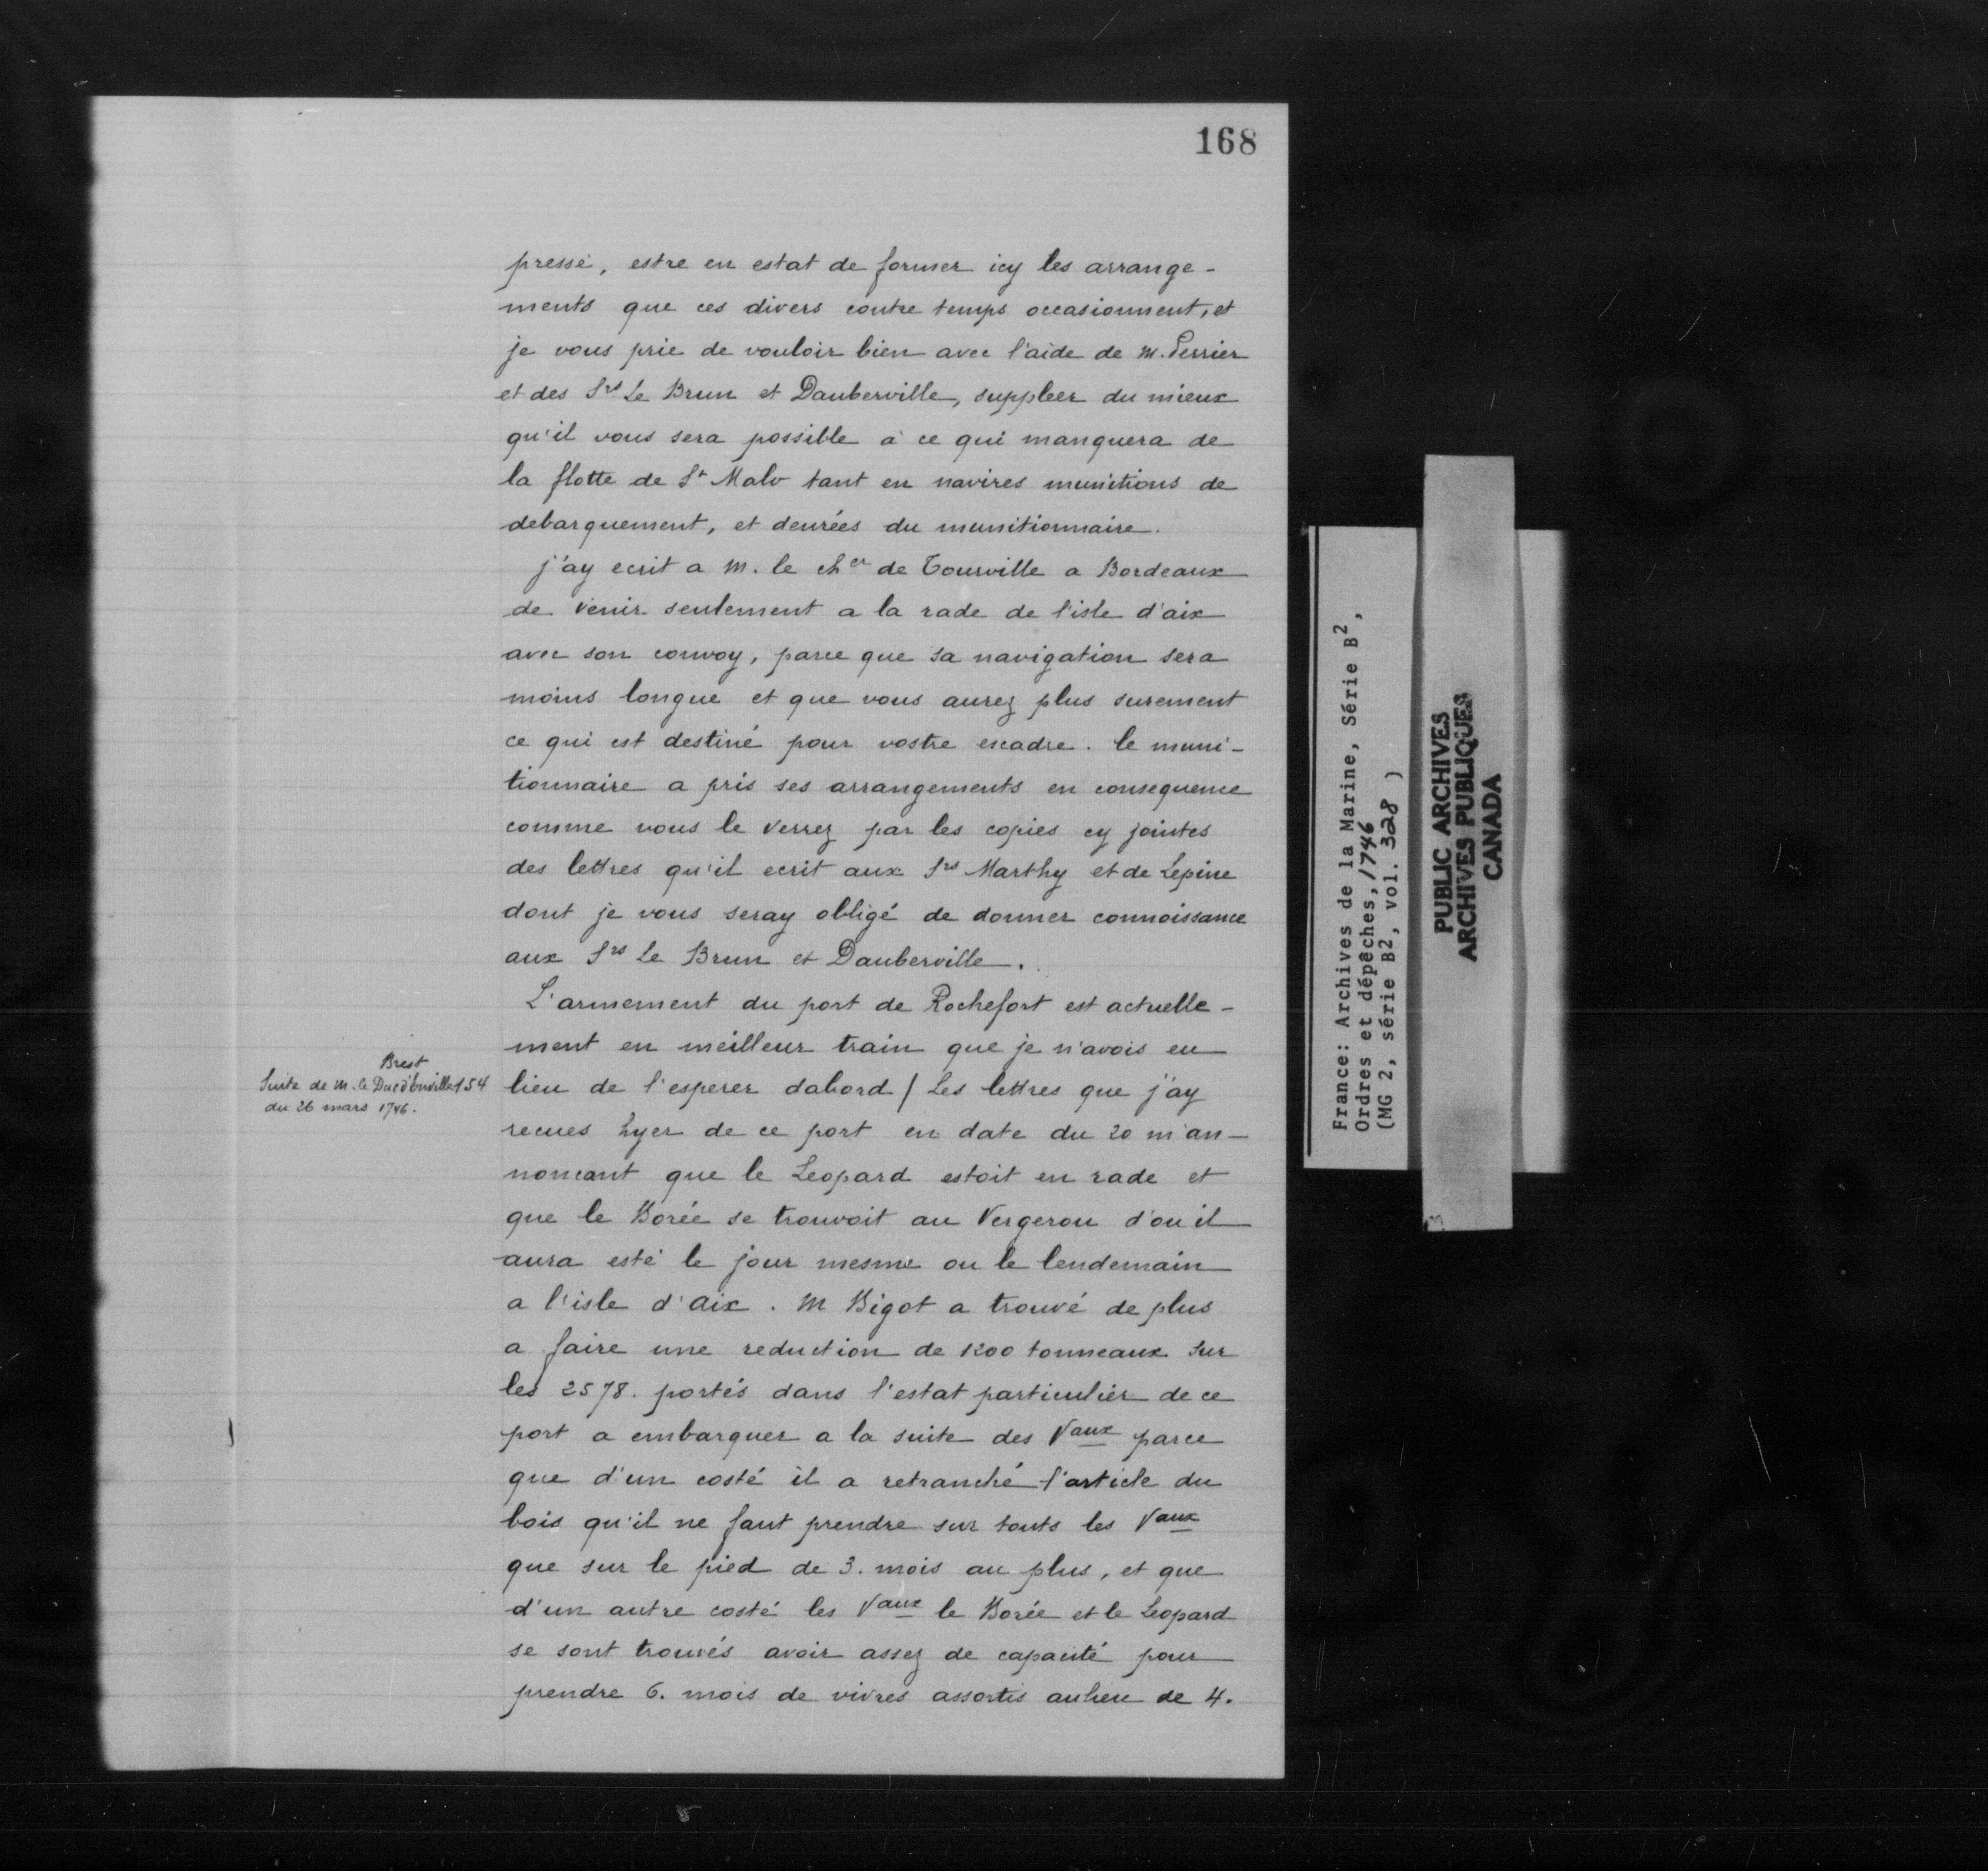 168
pressé, estre en estat de former icy les arrange-
ments que ces divers contre temps occasionnent, et
je vous prie de vouloir bien avec l'aide de M. Perrier
et des Srs Le Brun et Dauberville, suppleer du mieux
qu'il vous sera possible à ce qui manquera de
la flotte de St Malo tant en navires munitions de
debarquement, et denrées du munitionnaire.
j'ay ecrit a M. le cher de Tourville a Bordeaux
de venir seulement a la rade de l'isle d'aix
avec son convoy, parce que sa navigation sera
moins longue et que vous aurez plus surement
ce qui est destiné pour vostre escadre. le muni-
tionnaire a pris ses arrangements en consequence
comme vous le verrez par les copies cy jointes
des lettres qu'il ecrit aux Srs Marthy et de Lepine
dont je vous seray obligé de donner connoissance
aux Srs Le Brun et Dauberville.
L'armement du port de Rochefort est actuelle-
ment en meilleur train que je n'avois eu
Brest
Suite de M. le Duc d'Enville 154
du 26 mars 1746.
lieu de l'esperer dabord / Les lettres que j'ay
recues hyer de ce port en date du 20 m'an-
noncant que le Leopard estoit en rade et
que le Borée se trouvoit au Vergerou d'ou il
aura esté le jour mesme ou le lendemain
a l'isle d'aix. M Bigot a trouvé de plus
a faire une reduction de 1200 tonneaux sur
les 2578. portés dans l'estat particulier de ce
port a embarquer a la suite des Vaux parce
que d'un costé il a retranché l'article du
bois qu'il ne faut prendre sur touts les Vaux
que sur le pied de 3. mois au plus, et que
d'un autre costé les Vaux le Borée et le Leopard
se sont trouvés avoir assez de capacité pour
prendre 6. mois de vivres assortis aulieu de 4.
France: Archives de la Marine, Série B2,
Ordres et dépêches, 1746
(MG 2, série B2, vol. 328 )
PUBLIC ARCHIVES
ARCHIVES PUBLIQUES
CANADA